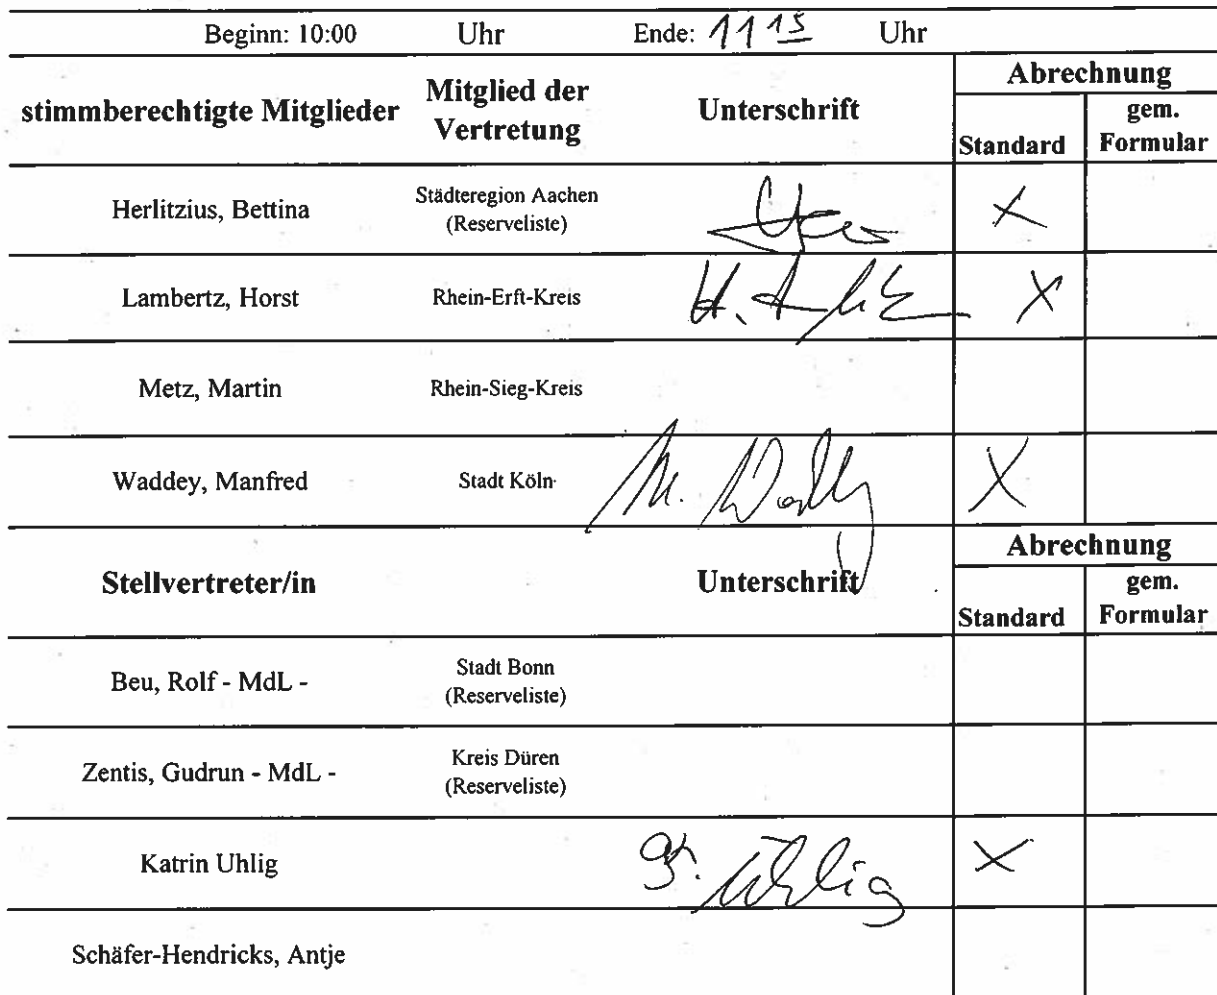 Beginn: 10:00 Uhr Ende: 11 15 Uhr
stimmberechtigte Mitglieder Mitglied der Vertretung Unterschrift Abrechnung
Standard gem. Formular
Herlitzius, Bettina Städteregion Aachen (Reserveliste) X
Lambertz, Horst Rhein-Erft-Kreis H. X
Metz, Martin Rhein-Sieg-Kreis
Waddey, Manfred Stadt Köln M. X
Stellvertreter/in Unterschrift Abrechnung
Standard gem. Formular
Beu, Rolf - MdL - Stadt Bonn (Reserveliste)
Zentis, Gudrun - MdL - Kreis Düren (Reserveliste)
Katrin Uhlig Uhlig X
Schäfer-Hendricks, Antje